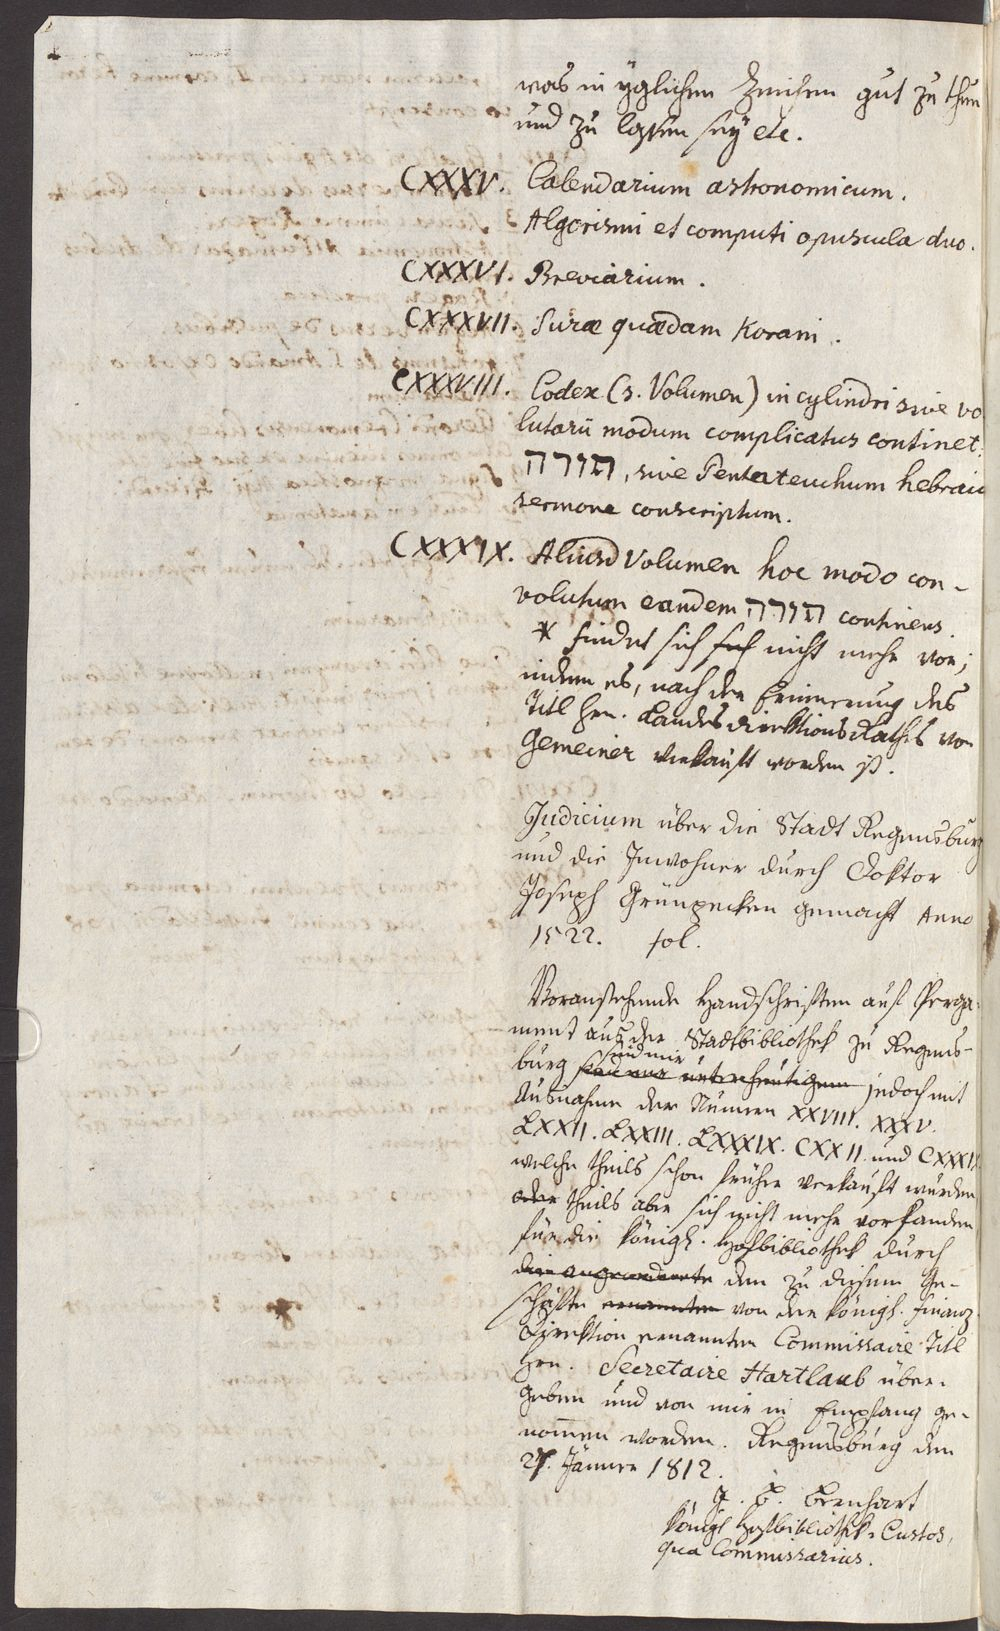 was in yglichem Zeichen gut zu thun
und zu lassen sey etc.
CXXXV. Calendarium astronomicum.
Algorismi et computi opuscula duo.
CXXXVI. Breviarium.
CXXXVII. Suræ quædam Korani.
CXXXVIII. Codex (s. Volumen) in cylindri sive vo
lutarii modum complicatus continet:
תורה, sive Pentateuchum hebraic
sermone conscriptum.
CXXXIX. Aliud Volumen hoc modo con-
volutum eandem תורה continens.
* findet sich sich nicht mehr vor;
indem es, nach der Erinnerung des
Titl Hrn. Landes direktions Rathes von
Gemeiner verkauft worden ist.
Judicium über die Stadt Regensburg
und die Inwohner durch Doktor
Joseph Grünpecken gemacht Anno
1522. fol.
Voranstehende Handschriften auf Perga-
ment aus der Stadtbibliothek zu Regens-
sind mir
burg sind mir unterheutigem jedoch mit
Ausnahme der Numern XXVIII. XXXV.
LXXII. LXXIII. LXXXIX. CXXII. und CXXXIX
welche theils schon früher verkauft wurden
oder theils aber sich nicht mehr vorfanden
für die königl. Hofbibliothek durch
die angeordnete den zu diesem Ge-
schäfte ernannten von der königl. Finanz
Direktion ernannten Commissaire Titl
Hrn. Secretaire Hartlaub über-
geben und von mir in Empfang ge-
nommen worden. Regensburg den
27. Jänner 1812.
J. B. Bernhart
königl Hofbibliothek-Custos,
qua Commissarius.